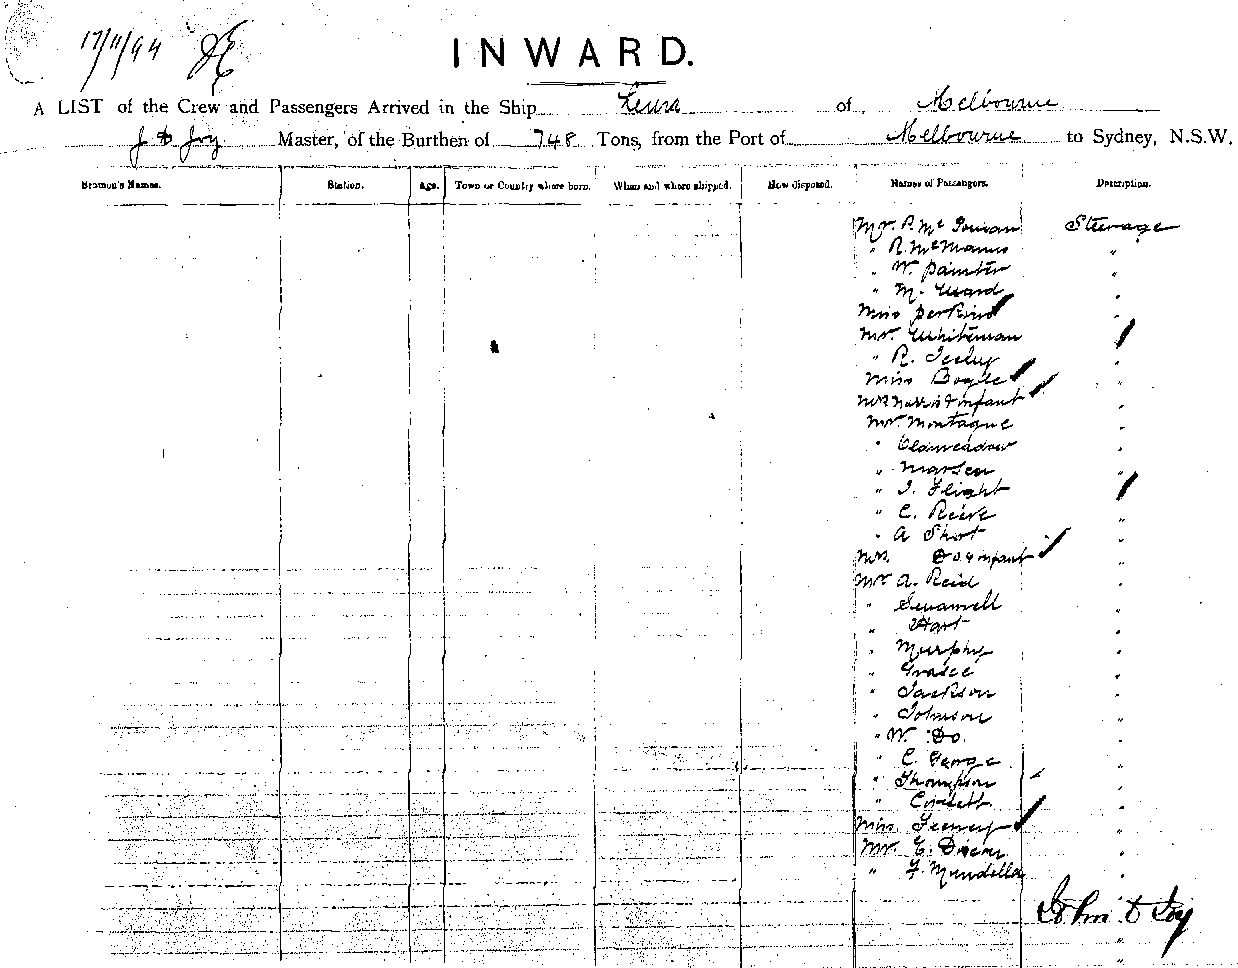 17/11/94
INWARD.
A LIST of the Crew and Passengers Arrived in the Ship Leura of Melbourne
J D Joy Master, of the Burthen of 748 Tons, from the Port of Melbourne to Sydney, N.S.W.
Seamen's Names. Station. Age. Town or Country where born. When and where shipped. How disposed. Names of Passengers. Description.
Mr. P. Mc Gowan Steerage
" R. McManus "
" W. Painter "
" M. Ward "
Miss Perkins "
Mr. Whiteman
" R. "
Miss Bogle "
Mrs Norris & infant "
Mr. Montague "
" Oldmeadow "
" Marsden "
" J. Flight
" C. Reeve "
" A Short "
Mrs Do & infant "
Mr A. Reid "
" "
" Hart "
" Murphy "
" Grace "
" Jackson "
" Johnson "
" W. Do. "
" C. George "
" Thompson "
" Corbett "
Miss "
Mr E. "
" F. Mundella "
John D Joy
"